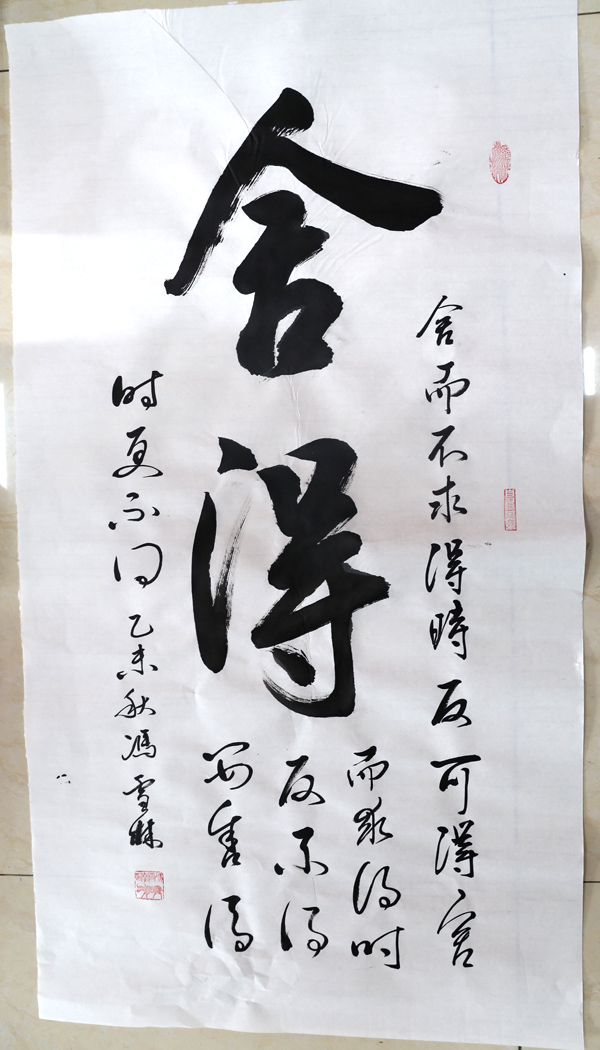 舍得
舍而不求得時反可得舍
而求得时
反不得
得
时更不同 乙未秋馮雪林